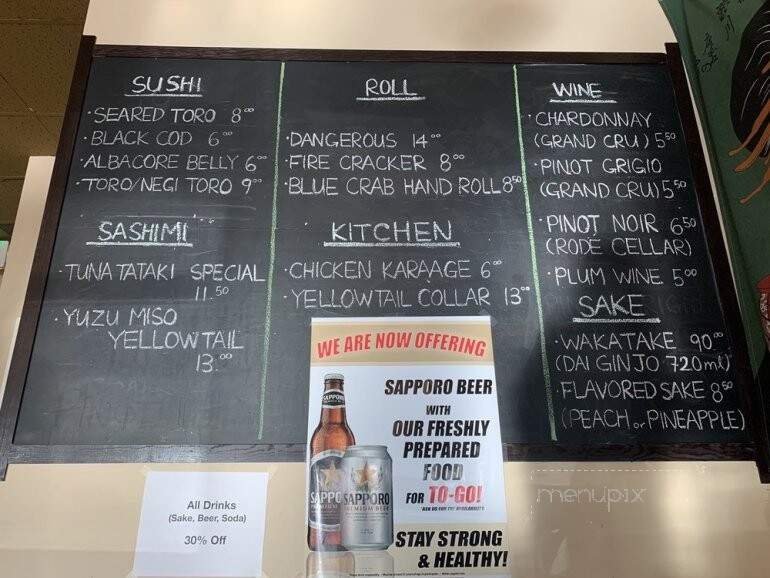 SUSHI
·SEARED TORO 8.00
·BLACK COD 6.00
·ALBACORE BELLY 6.00
·TORO/NEGI TORO 9.00
SASHIMI
·TUNA TATAKI SPECIAL
11.50
·YUZU MISO
YELLOWTAIL
13.00
ROLL
·DANGEROUS 14.00
·FIRE CRACKER 8.00
·BLUE CRAB HAND ROLL 8.50
KITCHEN
·CHICKEN KARAAGE 6.00
·YELLOWTAIL COLLAR 13.00
WINE
·CHARDONNAY
(GRAND CRU) 5.50
·PINOT GRIGIO
(GRAND CRU) 5.50
·PINOT NOIR 6.50
(RODE CELLAR)
·PLUM WINE 5.00
SAKE
·WAKATAKE 90.00
(DAI GINJO 720ml)
·FLAVORED SAKE 8.50
(PEACH or PINEAPPLE)
WE ARE NOW OFFERING
SAPPORO BEER
WITH
OUR FRESHLY
PREPARED
FOOD
FOR TO-GO!
*ASK US FOR THE AVAILABILITY
STAY STRONG
& HEALTHY!
SAPPORO
SAPPO
SAPPORO
PREMIUM BEER
All Drinks
(Sake, Beer, Soda)
30% Off
menupix